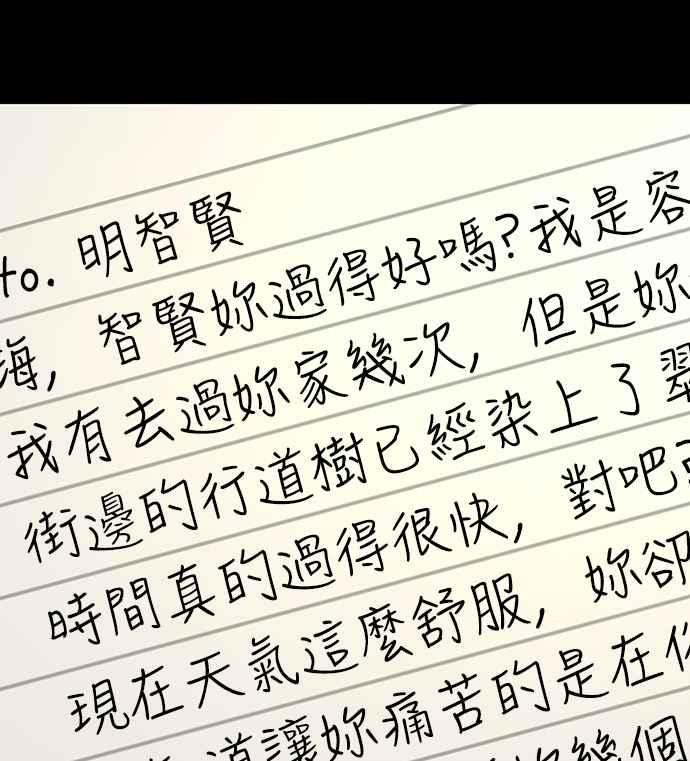 to. 明智賢
海，智賢妳過得好嗎?我是容
我有去過妳家幾次，但是妳
街邊的行道樹已經染上了翠
時間真的過得很快，對吧
現在天氣這麼舒服，妳卻
道讓妳痛苦的是在你
幾個